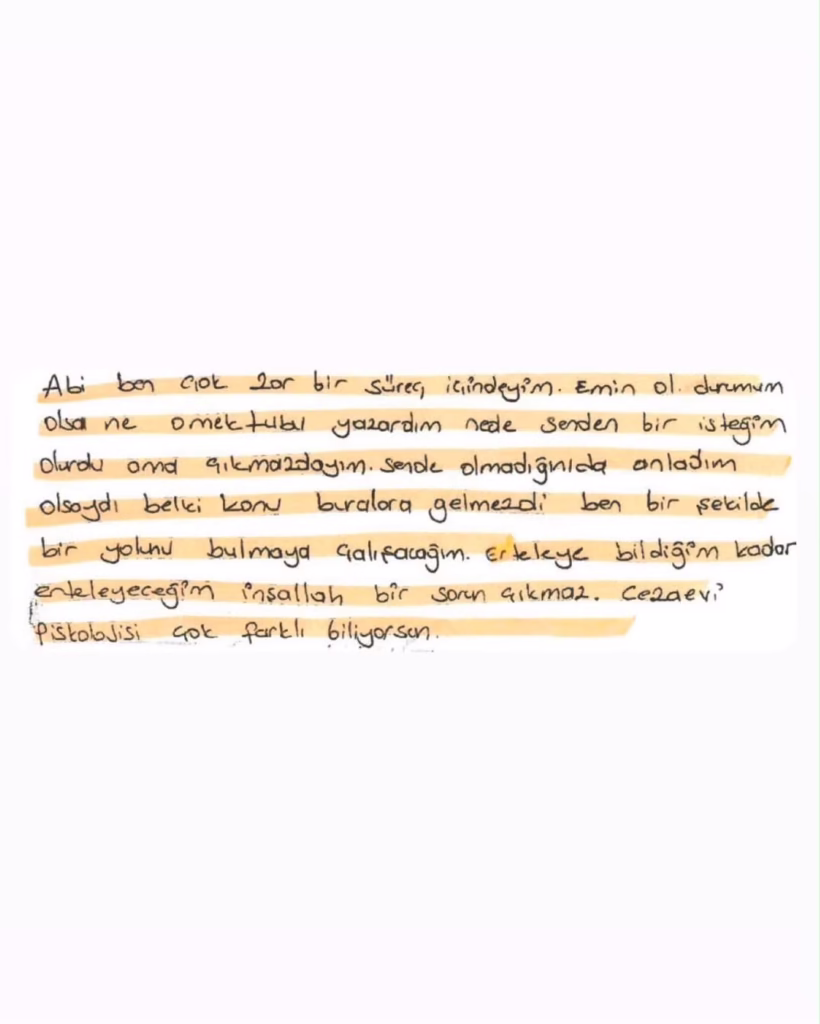 Abi ben çok zor bir süreç içindeyim. Emin ol. durumum
olsa ne omektubu yazardım nede senden bir isteğim
olurdu ama çıkmazdayım. sende olmadığınıda anladım
olsaydı belki konu buralara gelmezdi ben bir şekilde
bir yolunu bulmaya çalışacağım. Erteleye bildiğim kadar
erteleyeceğim inşallah bir sorun çıkmaz. Cezaevi
Piskolojisi çok farklı biliyorsun.